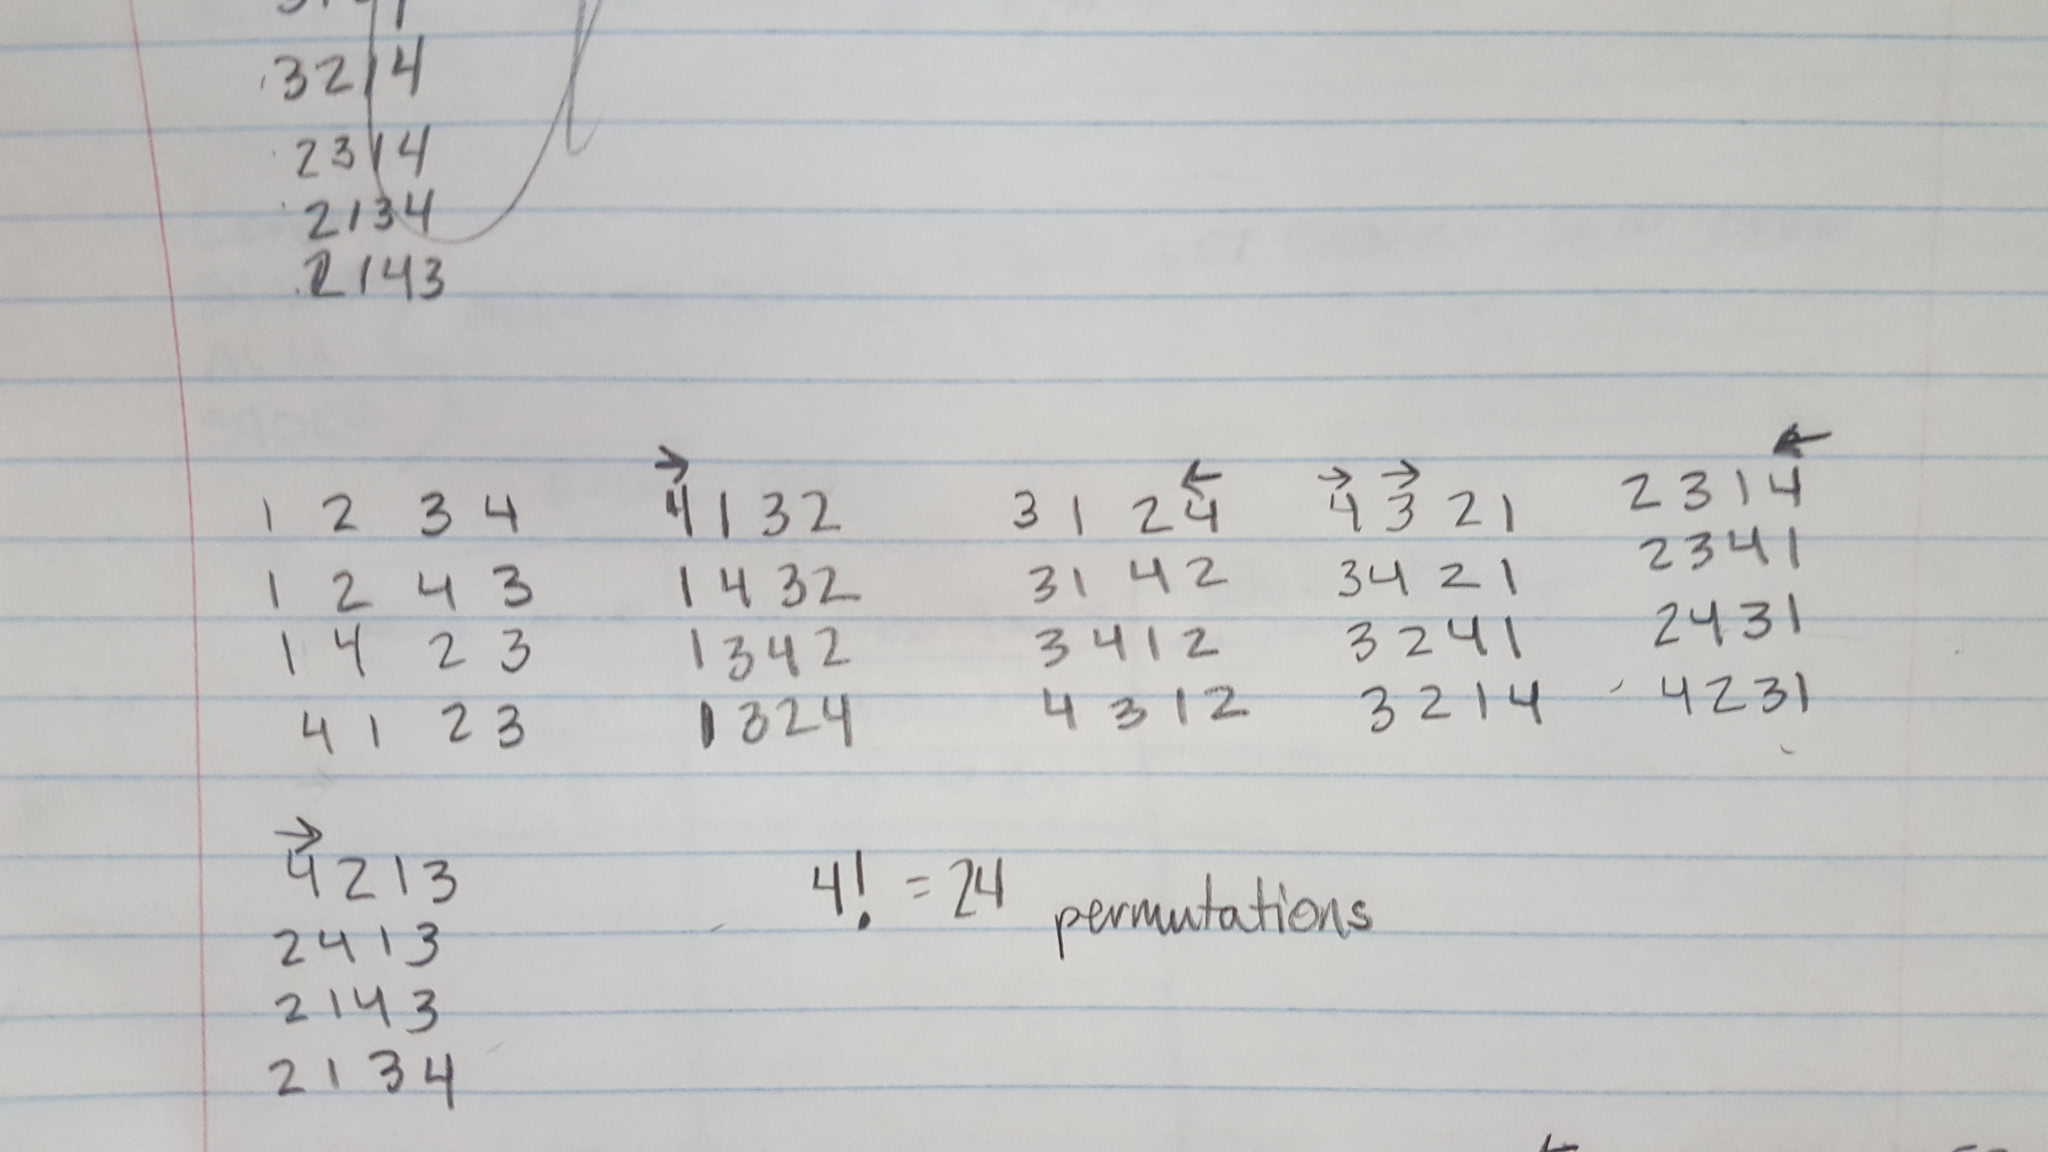 3214
2314
2134
2143
1 2 3 4
1 2 4 3
1 4 2 3
4 1 2 3
→
4132
1432
1342
1324
←
3 1 2 4
31 42
3 412
4 312
→ →
4 3 2 1
34 2 1
3 2 4 1
3 2 1 4
←
2 3 1 4
2341
2431
4231
→
4213
2413
2143
2134
4! = 24 permutations